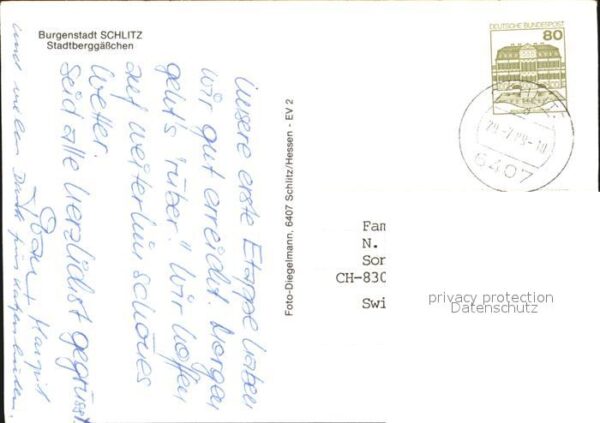 Burgenstadt SCHLITZ
Stadtberggäßchen
Unsere erste Etappe haben
wir gut erreicht. Morgen
geht's "rüber". Wir hoffen
auf weiterhin schönes
Wetter.
Seid alle herzlichst gegrüsst
Margit
und vielen Dank für
Foto-Diegelmann, 6407 Schlitz/Hessen - EV 2
DEUTSCHE BUNDESPOST
80
6407
Fam
N.
Son
CH-830
Swi
privacy protection
Datenschutz